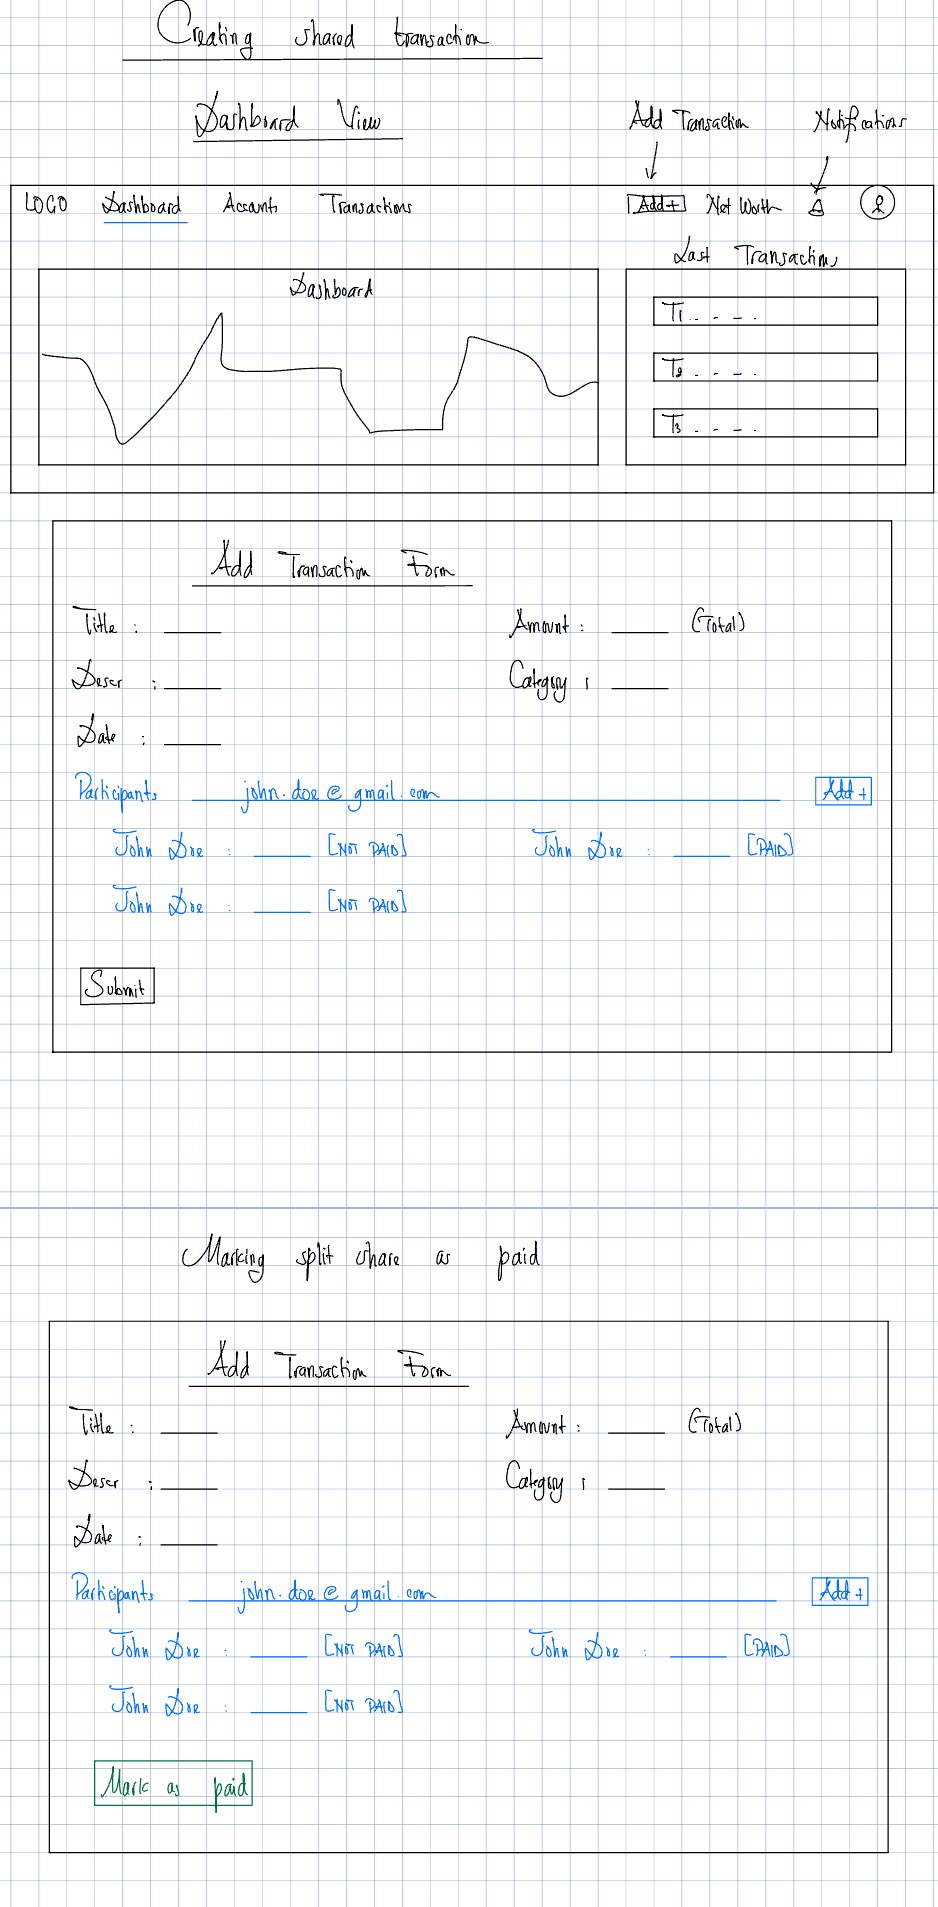 Creating shared transaction
Dashboard View
Add Transaction Notifications
LOGO Dashboard Accounts Transactions Add+ Net Worth
Last Transactions
Dashboard
T1 . - - .
T2 . - - .
T3 . - - .
Add Transaction Form
Title : Amount : (Total)
Descr : Category :
Date :
Participants john.doe@gmail.com Add+
John Doe : [NOT PAID] John Doe : [PAID]
John Doe : [NOT PAID]
Submit
Marking split share as paid
Add Transaction Form
Title : Amount : (Total)
Descr : Category :
Date :
Participants john.doe@gmail.com Add+
John Doe : [NOT PAID] John Doe : [PAID]
John Doe : [NOT PAID]
Mark as paid